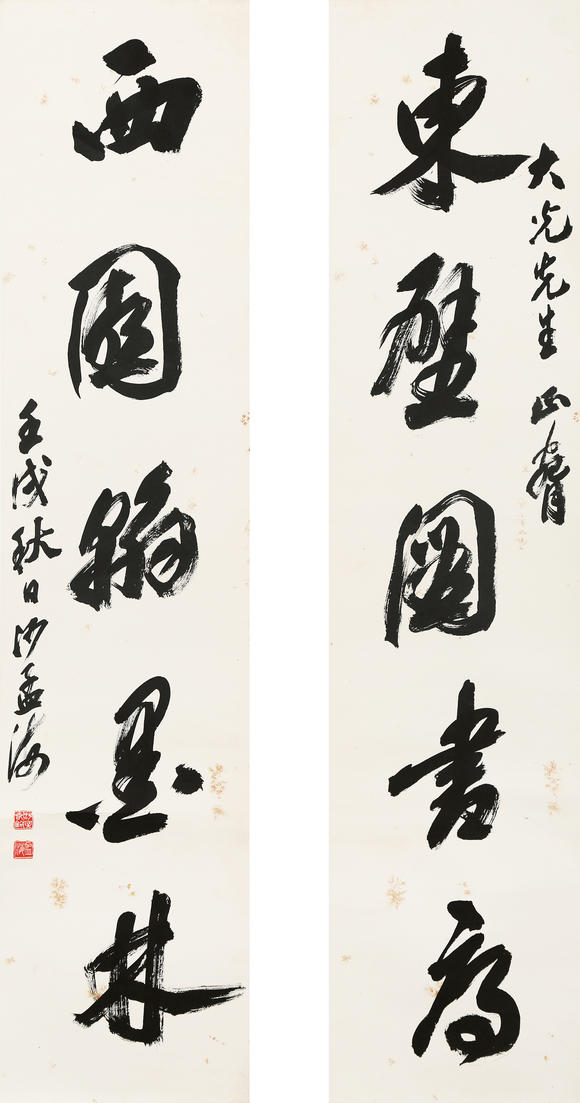 大光先生正
東壁圖書府
西園翰墨林
壬戌秋日沙孟海